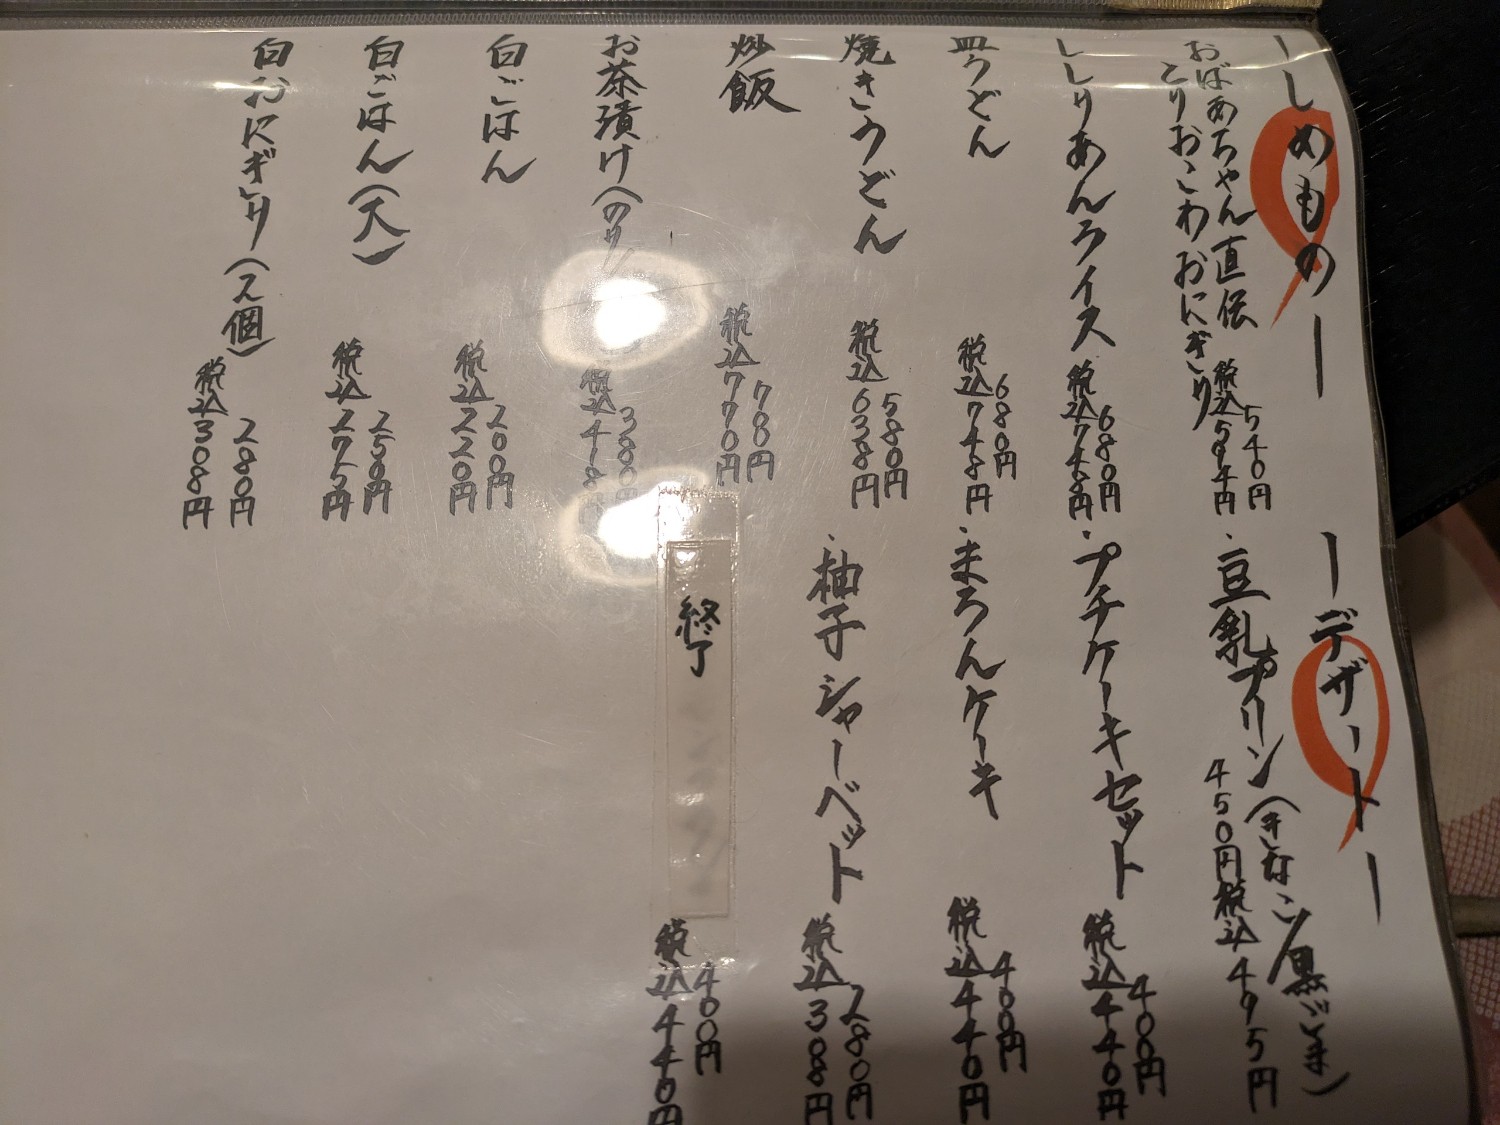 ーしめものー
おばあちゃん直伝
とりおこわおにぎり
540円
税込594円
ししりあんライス
680円
税込748円
皿うどん
680円
税込748円
焼きうどん
580円
税込638円
炒飯
700円
税込770円
お茶漬け(のり)
380円
税込418円
白ごはん
200円
税込220円
白ごはん(大)
250円
税込275円
白おにぎり(2個)
280円
税込308円
ーデザートー
・豆乳プリン(きなこ/黒ごま)
450円税込495円
・プチケーキセット
400円
税込440円
・まろんケーキ
400円
税込440円
・柚子シャーベット
280円
税込308円
終了
400円
税込440円